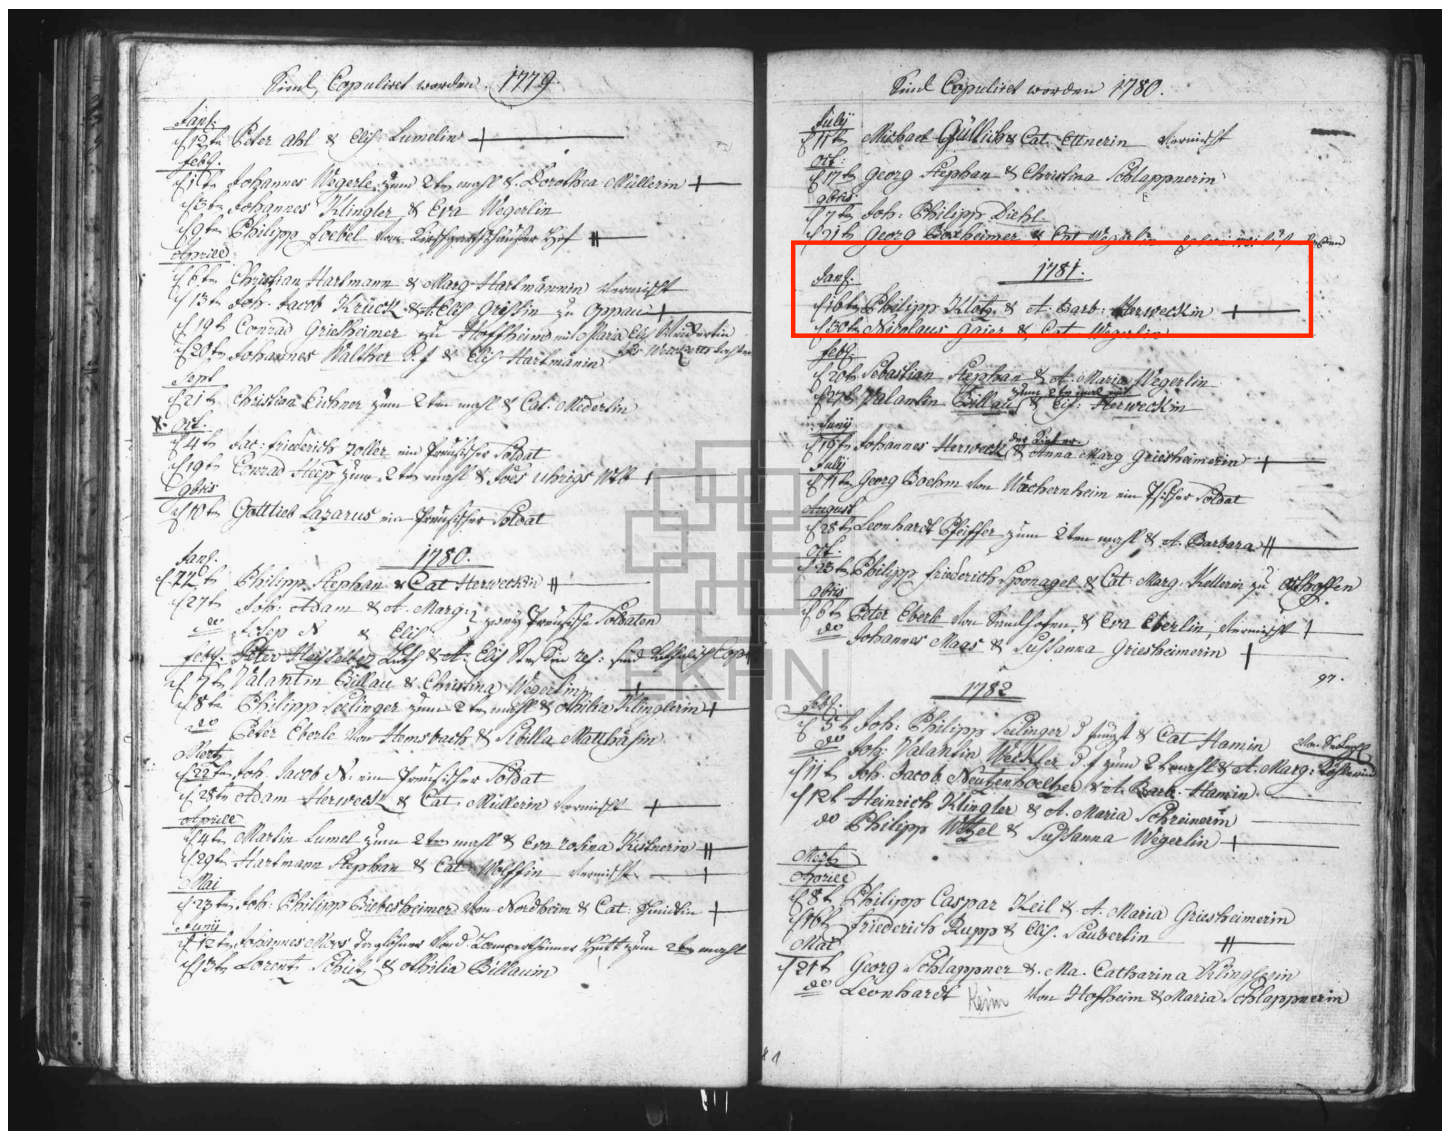 Sind Copuliret worden 1779.
Janr.
d 12t Peter Ahl & Elis Lumelin
febr.
d 1t Johannes Wegerle zum 2ten mahl & Dorothea Müllerin
d 3t Johannes Klingler & Eva Wegerlin
d 9t Philipp Hof
Aprill
d 6t Christian Hartmann & Marg Hartmännin vermischt
d 13t Joh. Jacob Krück & A. Elis zu Oppau
d 19t Conrad Griesheimer zu Hoffheim Maria Elis
d 20t Johannes Walther & Elis Hartmänin
Sept
d 21t Christian Eichner zum 2ten mahl & Cat. Miderlin
X. Oct.
d 4t Jac: friederich Zoller ein Preusischer Soldat
d 19t Conrad zum 2ten mahl & Uhrigs Wtb
9bris
d 10t Gottlieb Lazarus ein Preusischer Soldat
1780.
Janr.
d 22t Philipp Stephan & Cat Herweckin
d 27t Joh. Adam & A. Marg. zwey Preusische Soldaten
do N & Elis
febr.
d 7t Valantin Billau & Christina Wegerlin
d 8t Philipp Seelinger zum 2ten mahl & Othilia Klinglerin
do Peter Eberle von Hemsbach & Sibilla Matthäsin
Mertz
d 22t Joh. Jacob N. ein Preusischer Soldat
d 28t Adam Herweck & Cat. Müllerin vermischt
Aprill
d 4t Martin Lumel zum 2ten mahl & Eva rosina
d 29t Hartmann Stephan & Cat Wolffin vermischt
Mai
d 23t Joh. Philipp Biebesheimer von Nordheim & Cat:
Juny
d 12t Johannes Maas zum 2ten mahl
d 13t Lorentz Schütz & Othilia Billauin
Sind Copuliret worden 1780.
July
d 11t Michael Güllich & Cat. Ettnerin vermischt
Oct:
d 17t Georg Stephan & Christina Schlappnerin
9bris
d 7t Joh: Philipp Diehl
d 21t Georg Boxheimer & Cat Wegerlin
1781.
Janr.
d 16t Philipp Klotz & A. Barb: Herweckin
d 30t Nicolaus Gaier & Cat Wegerlin
febr.
d 20t Sebastian Stephan & A. Maria Wegerlin
zum 2ten mal mit
d 27t Valantin Billau & Elis: Herweckin
Juny
d 19t Johannes Herweck & Anna Marg Griesheimerin
July
d 11t Georg Boehm von Wachernheim ein Soldat
August
d 28t Leonhardt Pfeiffer zum 2ten mahl & A. Barbara
Oct.
d 23t Philipp friederich Sponagel & Cat. Marg. Kellerin zu
9bris
d 6t Peter Eberle von Sandhofen, & Eva Eberlin, vermischt
do Johannes Maas & Sussanna Griesheimerin
97.
1782
febr.
d 5t Joh: Philipp Seelinger d jungst & Cat Hamin
do Joh: Valantin Weickler d. j zum 2ten mahl & A. Marg:
d 11t Joh. Jacob & A. Barb. Hamin
d 12t Heinrich Klingler & A. Maria Schreinerin
do Philipp Wetzel & Sussanna Wegerlin
Mertz
Aprill
d 8t Philipp Caspar Keil & A. Maria Griesheimerin
d 16t friederich Rupp & Elis. Sauberlin
Mai
d 21t Georg Schlappner & Ma. Catharina Klinglerin
do Leonhardt Keim von Hofheim & Maria Schlappnerin
EKHN